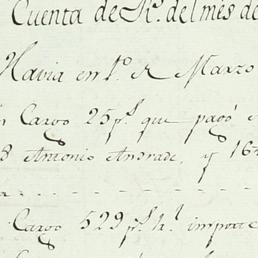 Cuenta de Rl. del mes de
Havia en 1o. de Marzo
Cargo 25 ps. que pagó
Antonio Andrade, y 16
Cargo 529 ps. rl. importe